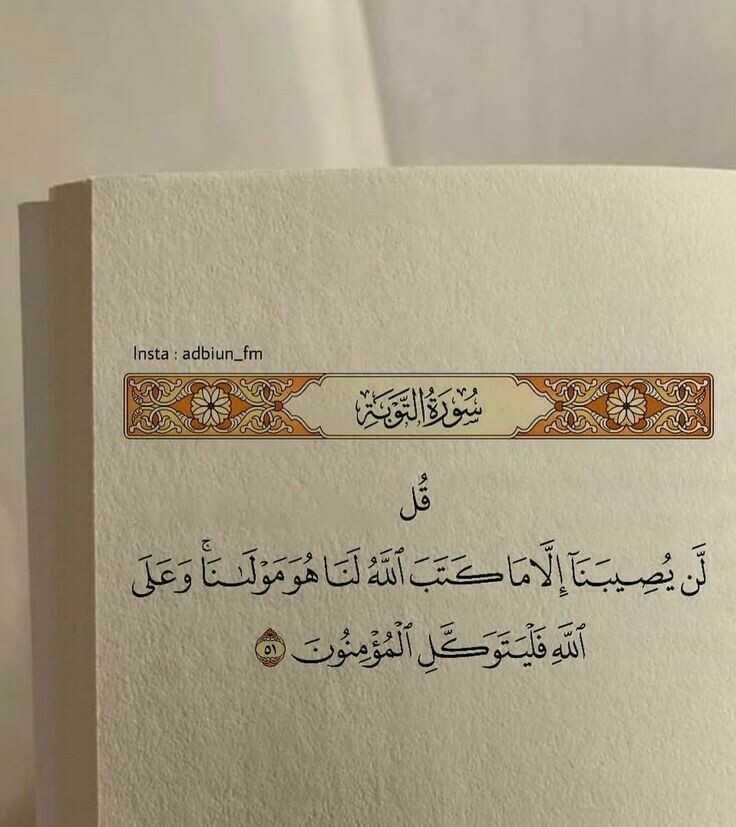 Insta : adbiun_fm
سُورَةُ التَّوْبَةِ
قُل
لَّن يُصِيبَنَآ إِلَّا مَا كَتَبَ ٱللَّهُ لَنَا هُوَ مَوْلَىٰنَا ۚ وَعَلَى
ٱللَّهِ فَلْيَتَوَكَّلِ ٱلْمُؤْمِنُونَ ٥١